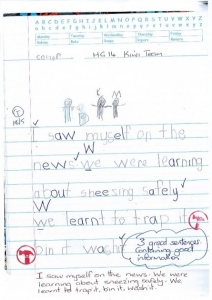 A B C D E F G H I J K L M N O P Q R S T U V W X Y Z
Monday Tuesday Wednesday Thursday Friday Saturday Sunday
W M
I saw myself on the
news we were learning
about sneezing safely
we learnt to trap it
bin it wash it
3 great sentences
containing good
information
I saw myself on the news. We were
learning about sneezing safely. We
learnt to trap it, bin it, wash it.